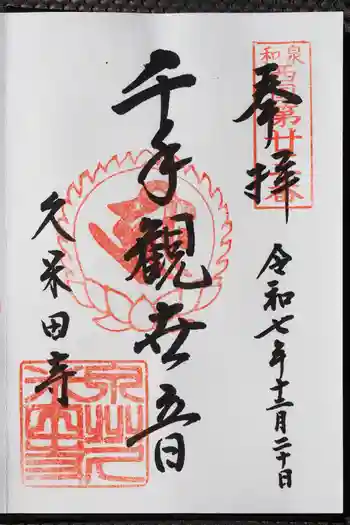 和泉
西国第廿番
奉拝
令和七年十二月二十日
千手観世音
久米田寺
泉州久
米田寺